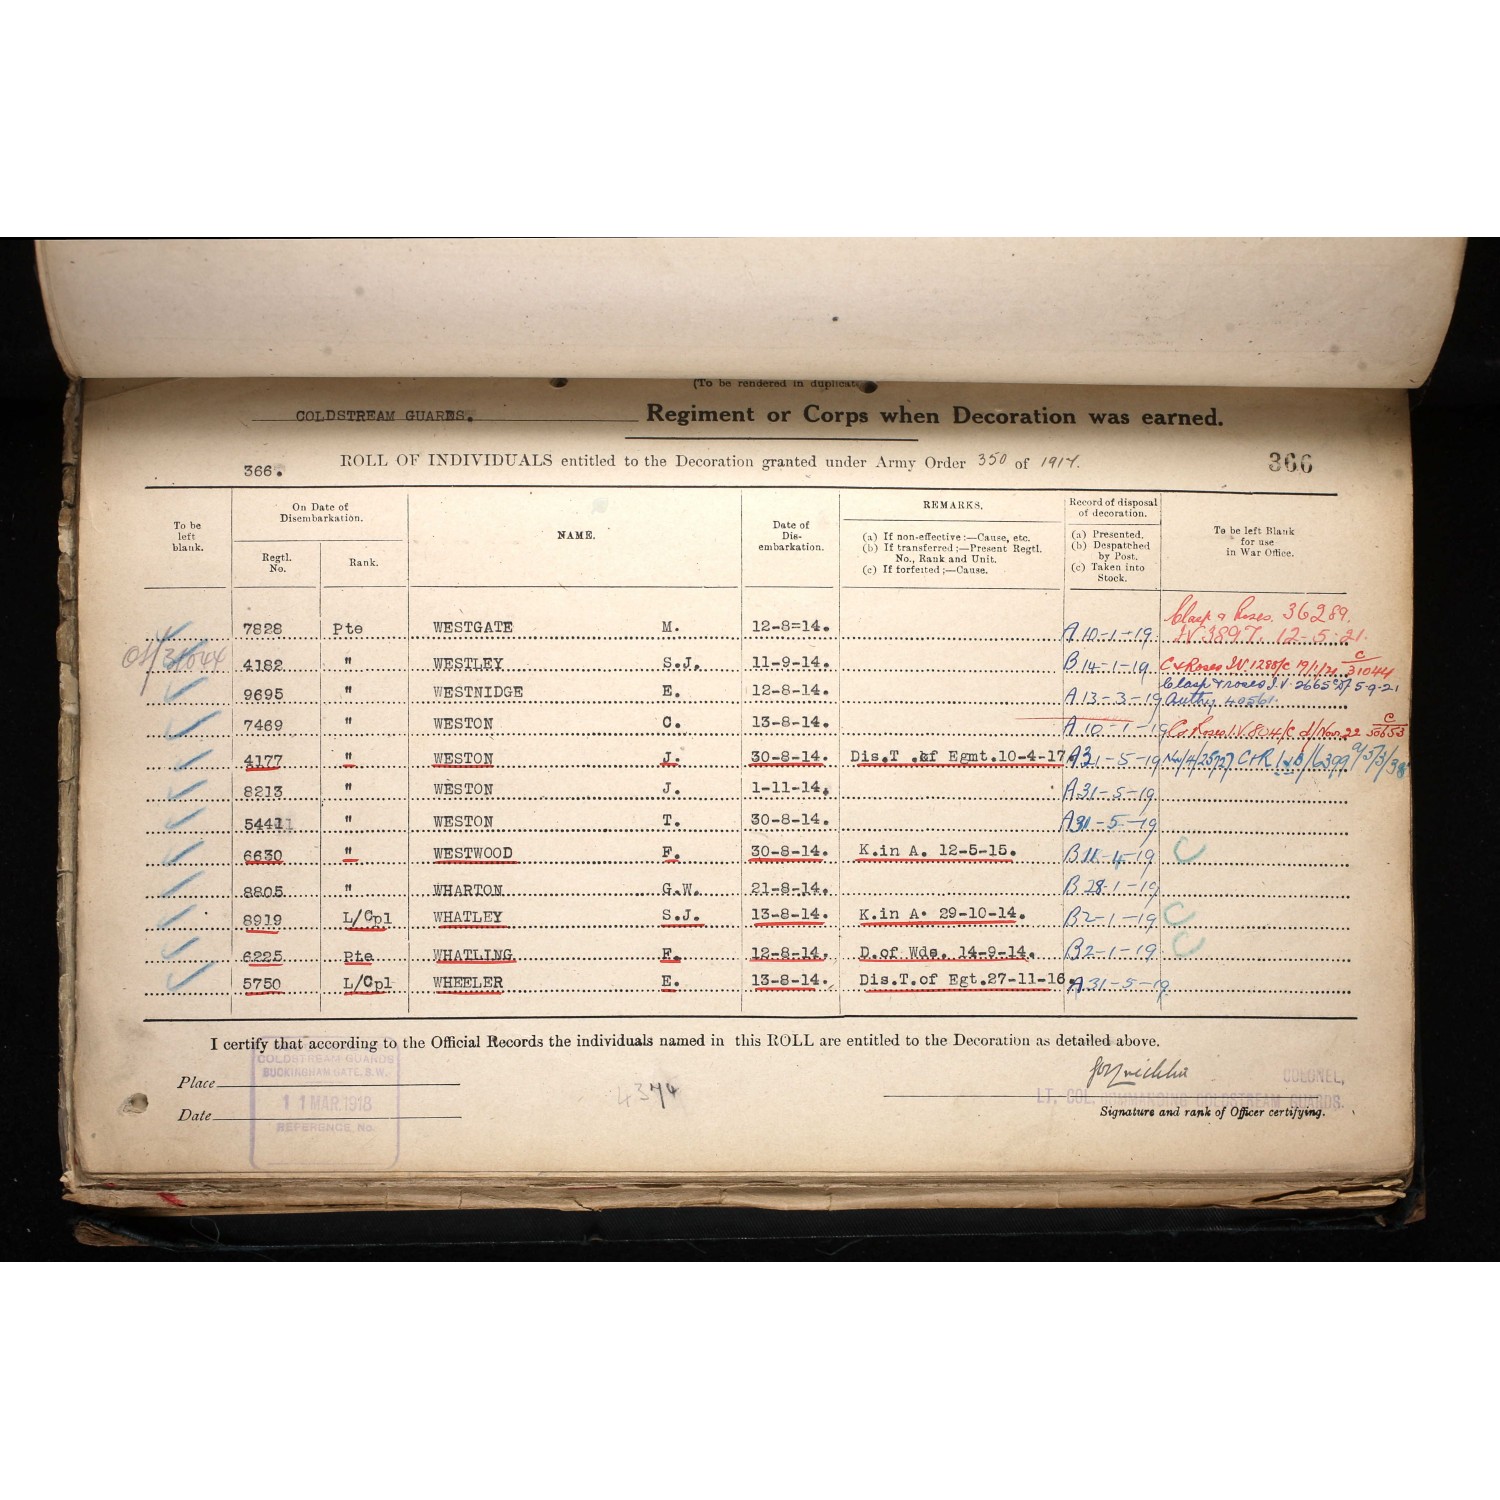 (To be rendered in duplicate
COLDSTREAM GUARDS. Regiment or Corps when Decoration was earned.
366. ROLL OF INDIVIDUALS entitled to the Decoration granted under Army Order 350 of 1917. 366
To be left blank. On Date of Disembarkation. Regtl. No. Rank. NAME. Date of Dis-embarkation. REMARKS. (a) If non-effective:—Cause, etc. (b) If transferred:—Present Regtl. No., Rank and Unit. (c) If forfeited:—Cause. Record of disposal of decoration. (a) Presented. (b) Despatched by Post. (c) Taken into Stock. To be left Blank for use in War Office.
Clasp & Roses. 36289.
7828 Pte WESTGATE M. 12-8=14. A 10-1-19. IV.3897. 12-5-21.
4182 " WESTLEY S.J. 11-9-14. B 14-1-19. C & Roses I.V. 1288/C 19/1/21 C 31044
9695 " WESTNIDGE E. 12-8-14. A 13-3-19 Clasp & roses I.V. 2665 5-9-21
Authy 40561.
7469 " WESTON C. 13-8-14. A 10-1-19 Roses I.V. 804/C d/Nov. 22 C 50653
4177 " WESTON J. 30-8-14. Dis.T .of Egmt.10-4-17 A 31-5-19
8213 " WESTON J. 1-11-14. A 31-5-19
5441 " WESTON T. 30-8-14. A 31-5-19
6630 " WESTWOOD F. 30-8-14. K.in A. 12-5-15. B 11-4-19 C
8805 " WHARTON G.W. 21-8-14. B 28-1-19
8919 L/Cpl WHATLEY S.J. 13-8-14. K.in A. 29-10-14. B 2-1-19 C
6225 Pte WHATLING F. 12-8-14. D.of Wds. 14-9-14. B 2-1-19. C
5750 L/Cpl WHEELER E. 13-8-14. Dis.T.of Egt.27-11-16. A 31-5-19
I certify that according to the Official Records the individuals named in this ROLL are entitled to the Decoration as detailed above.
COLDSTREAM GUARDS
BUCKINGHAM GATE. S.W.
11 MAR. 1918
REFERENCE. No.
Place
Date
4374
COLONEL,
LT. COL. COMMANDING COLDSTREAM GUARDS.
Signature and rank of Officer certifying.